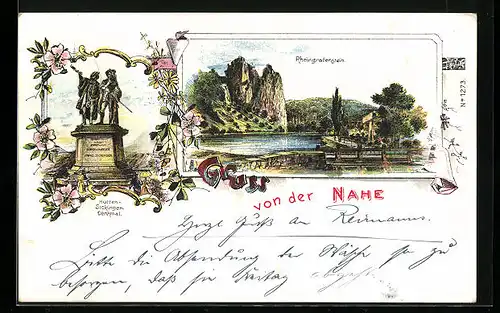 Rheingrafenstein.
No 1273.
Hutten-
Sickingen-
Denkmal.
Gruss
von der NAHE
Herzl. Gruß an
Bitte die Absendung der Wäsche so zu
besorgen, daß sie Freitag